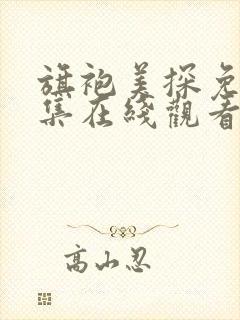 旗袍美探免
集在綫觀看
高山忍